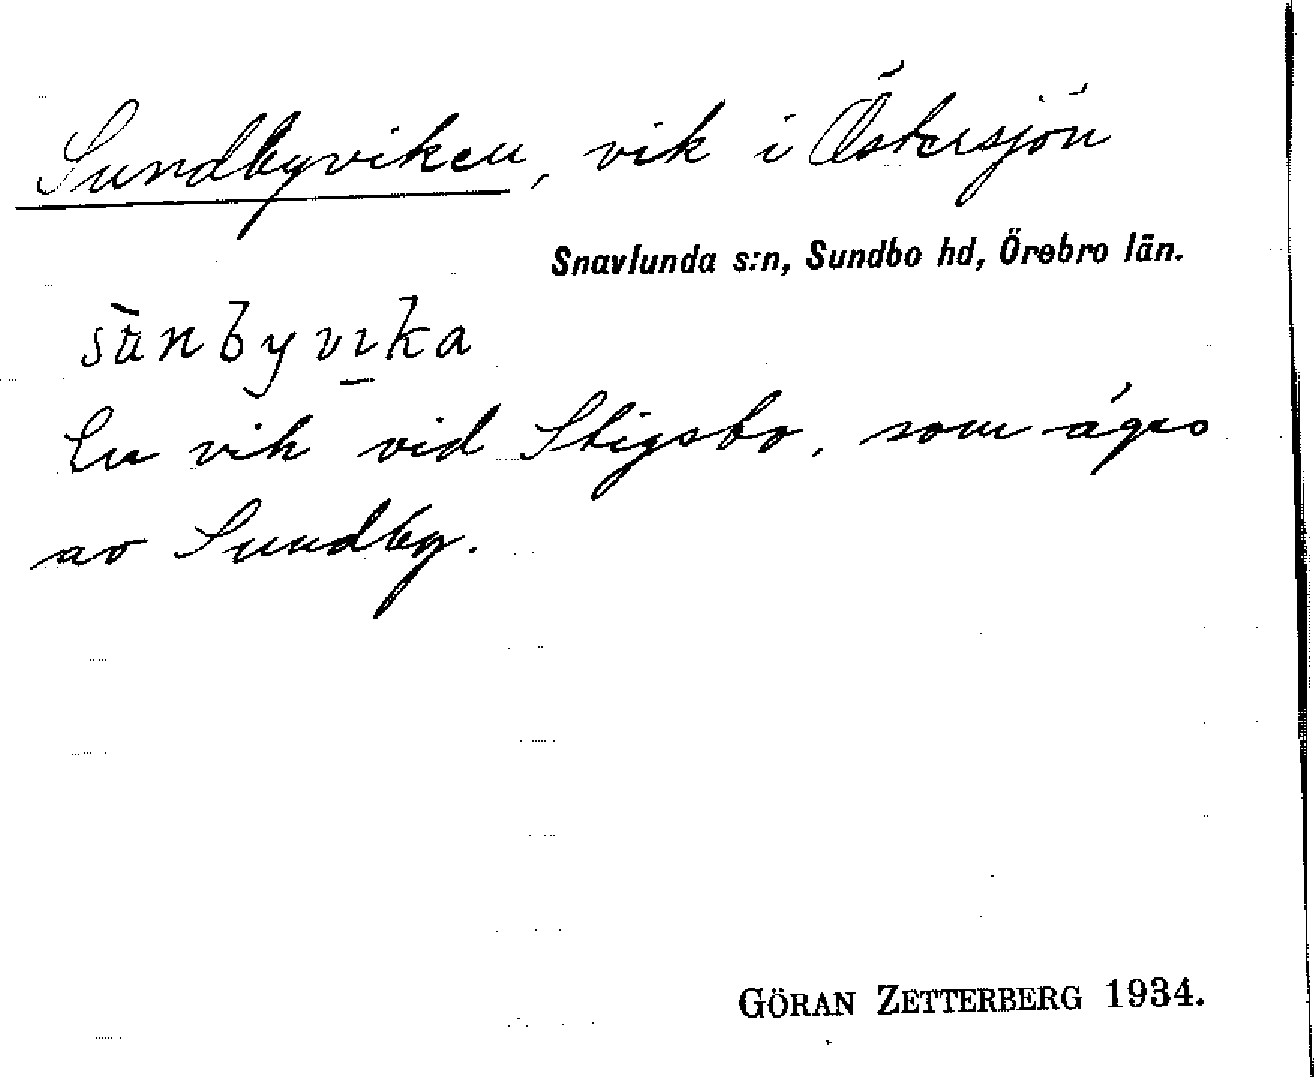 Sundbyviken, vik i Östersjön
Snavlunda s:n, Sundbo hd, Örebro län.
sùnbyvi̱ka
En vik vid Stigsbo, som äges
av Sundby.
GÖRAN ZETTERBERG 1934.